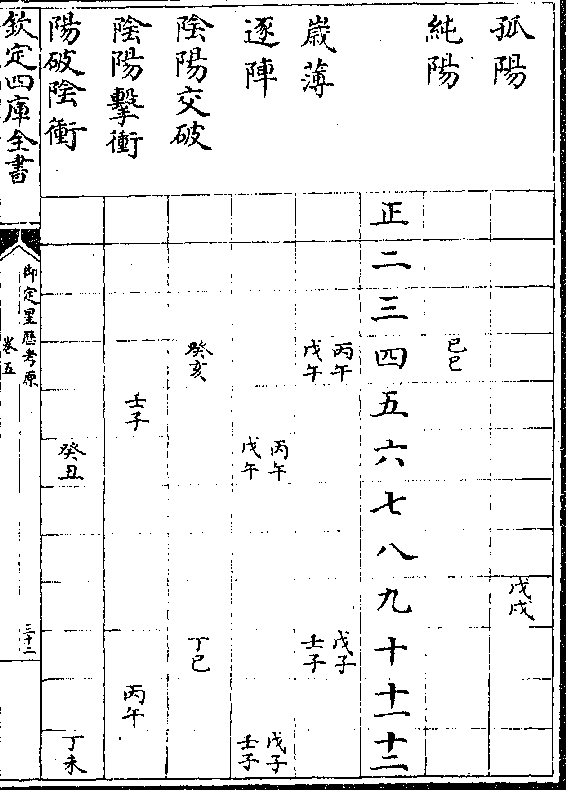 孤陽
純陽
歲薄
逐陣
陰陽交破
陰陽擊衝
陽破陰衝
戊戌
己巳
正二三四五六七八九十十一十二
丙午
戊午
戊子
壬子
丙午
戊午
戊子
壬子
癸亥
丁巳
壬子
丙午
癸丑
丁未
欽定四庫全書
御定星歷考原
卷五
三十二